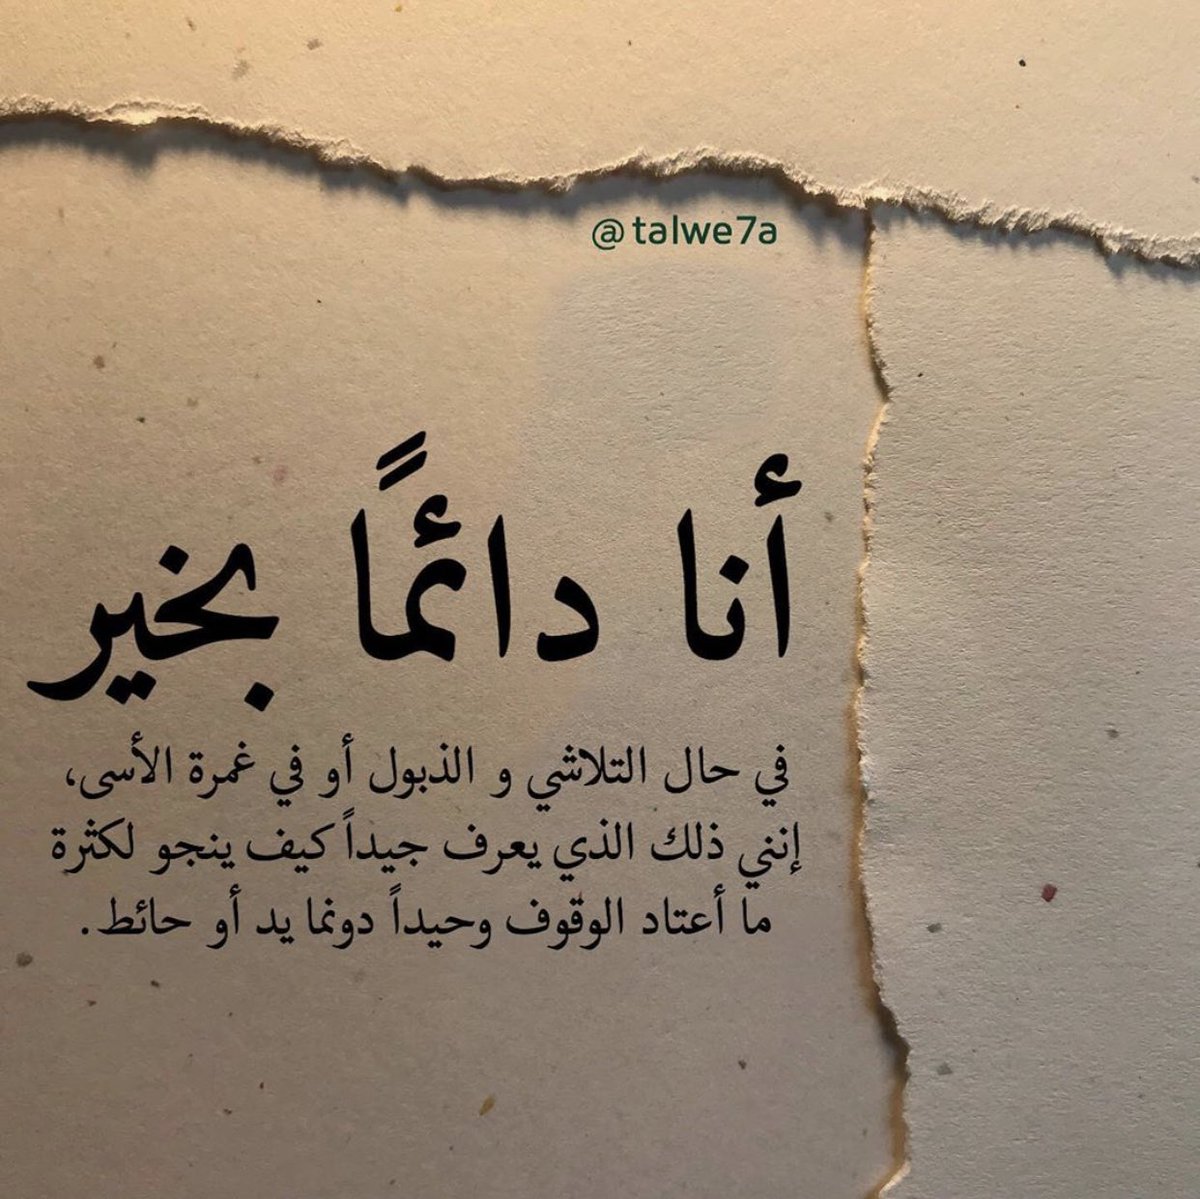 @talwe7a
أنا دائمًا بخير
في حال التلاشي و الذبول أو في غمرة الأسى،
إنني ذلك الذي يعرف جيداً كيف ينجو لكثرة
ما أعتاد الوقوف وحيداً دونما يد أو حائط.